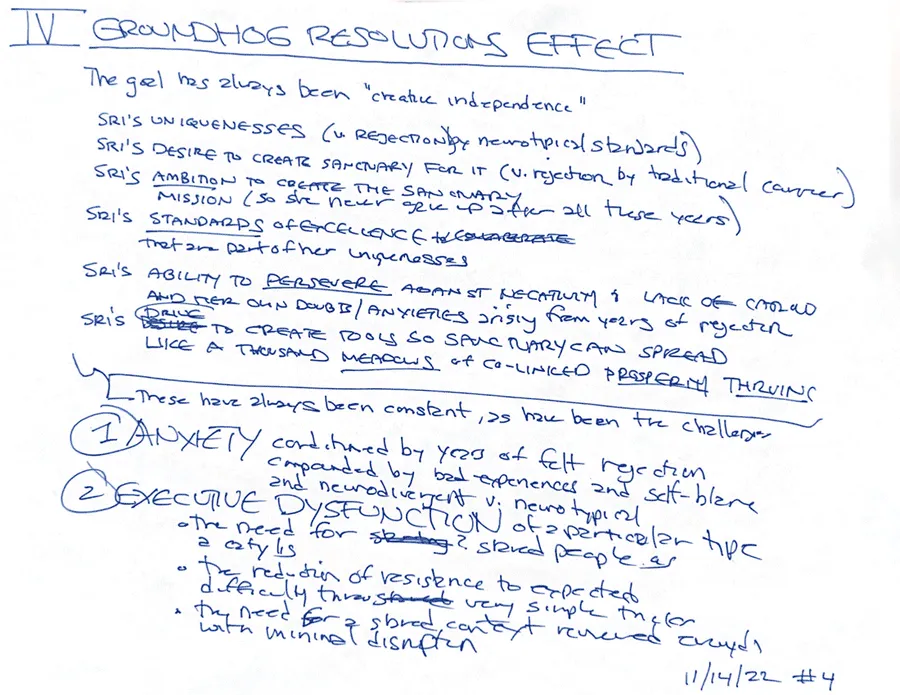 IV GROUNDHOG RESOLUTIONS EFFECT
The goal has always been "creative independence"
SRI'S UNIQUENESSES (v. REJECTION by neurotypical standards)
SRI'S DESIRE TO CREATE SANCTUARY FOR IT (v. rejection by traditional career)
SRI'S AMBITION TO CREATE THE SANCTUARY
MISSION (so she never gave up after all these years)
SRI'S STANDARDS OF EXCELLENCE
that are part of her uniquenesses
SRI'S ABILITY TO PERSEVERE AGAINST NEGATIVITY & LACK OF
AND HER OWN DOUBTS/ANXIETIES arising from years of rejection
SRI'S DRIVE TO CREATE TOOLS SO SANCTUARY CAN SPREAD
LIKE A THOUSAND MEADOWS of CO-LINKED PROSPERITY THRIVING
These have always been constant, as have been the challenges
1 ANXIETY conditioned by years of felt rejection
compounded by bad experiences and self-blame
and neurodivergent v. neurotypical
2 EXECUTIVE DYSFUNCTION of a particular type
• the need for shared people as
a catylis
• the reduction of resistence to expected
difficulty through very simple trigger
• the need for a shared context renewed
with minimal disruption
11/14/22 #4